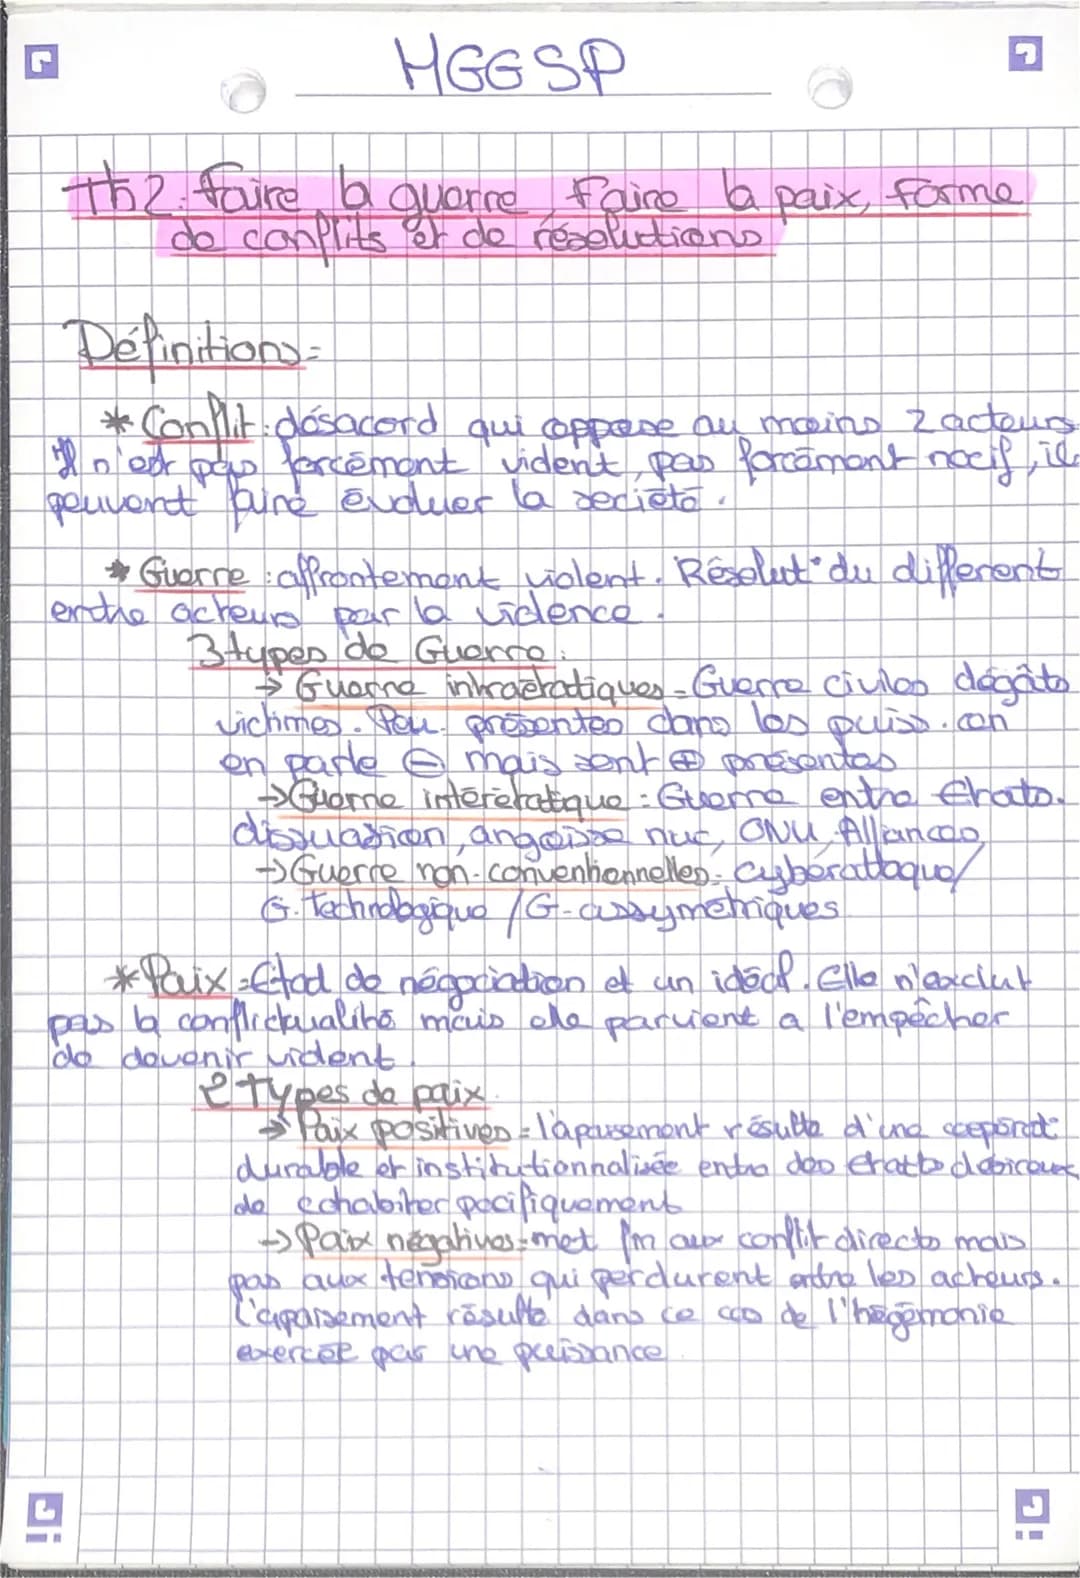 HGGSP
Th2: Faire la guerre, Faire la paix, forme
de conflits et de résolutions
Définitions:
* Conflit: désacord qui oppose au moins 2 acteurs
Il n'est pas forcément violent, pas forcément nocif, il
peuvent faire évoluer la société.
* Guerre : affrontement violent. Résolut° du different
entre acteurs par la violence.
3 types de Guerre:
→ Guerre intraétatiques = Guerre civiles dégâts
victimes. Peu présentes dans les puiss. on
en parle ⊖ mais sont ⊕ présentes
→ Guerre interétatique : Guerre entre Etats.
dissuasion, angoisse nuc, ONU, Alliances,
→ Guerre non-conventionnelles: cyberattaque/
G. technologique / G-assymétriques
* Paix = Etat de négociation et un idéal. Elle n'exclut
pas la conflictualité mais elle parvient a l'empêcher
de devenir violent.
2 Types de paix.
→ Paix positives = l'apaisement résulte d'une coopérat°
durable et institutionnalisée entre des étatts désireux
de cohabiter pacifiquement
→ Paix négatives = met fin aux conflit directs mais
pas aux tensions qui perdurent entre les acteurs.
L'apaisement résulte dans ce cas de l'hégémonie
exercée par une puissance